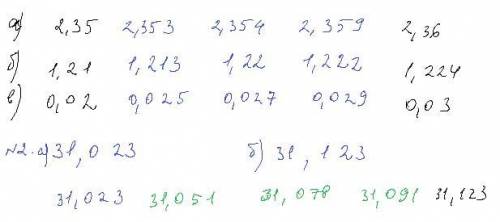 а) 2,35 2,353 2,354 2,359 2,36
б) 1,21 1,213 1,22 1,222 1,224
в) 0,02 0,025 0,027 0,029 0,03
№2. а) 31,023 б) 31,123
31,023 31,051 31,078 31,091 31,123